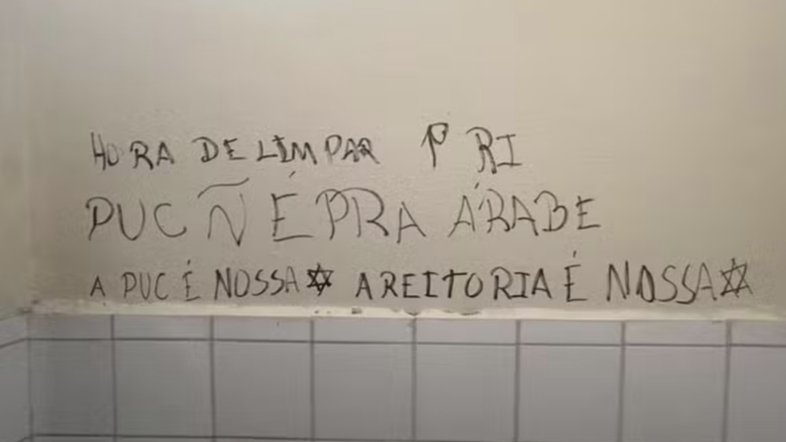 HORA DE LIMPAR RI
PUC Ñ É PRA ÁRABE
A PUC É NOSSA ✡ A REITORIA É NOSSA ✡